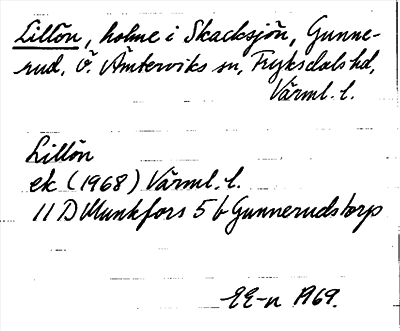 Lillön, holme i Skacksjön, Gunne-
rud, Ö. Ämterviks sn, Fryksdals hd,
Värml. l.
Lillön
ek (1968) Värml. l.
11 D Munkfors 5 b Gunnerudstorp
EE-n 1969.